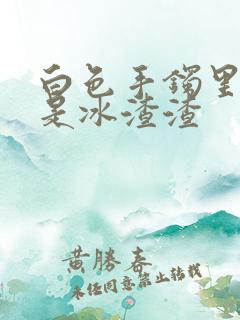 白色手镯里
是冰渣渣
黄勝春
未经同意禁止转载